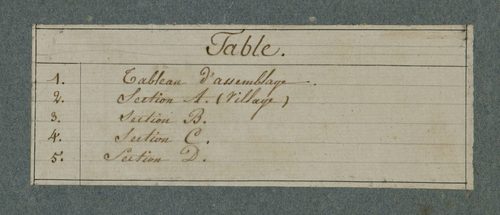 Table.
1. Tableau d'assemblage.
2. Section A. (Village)
3. Section B.
4. Section C.
5. Section D.